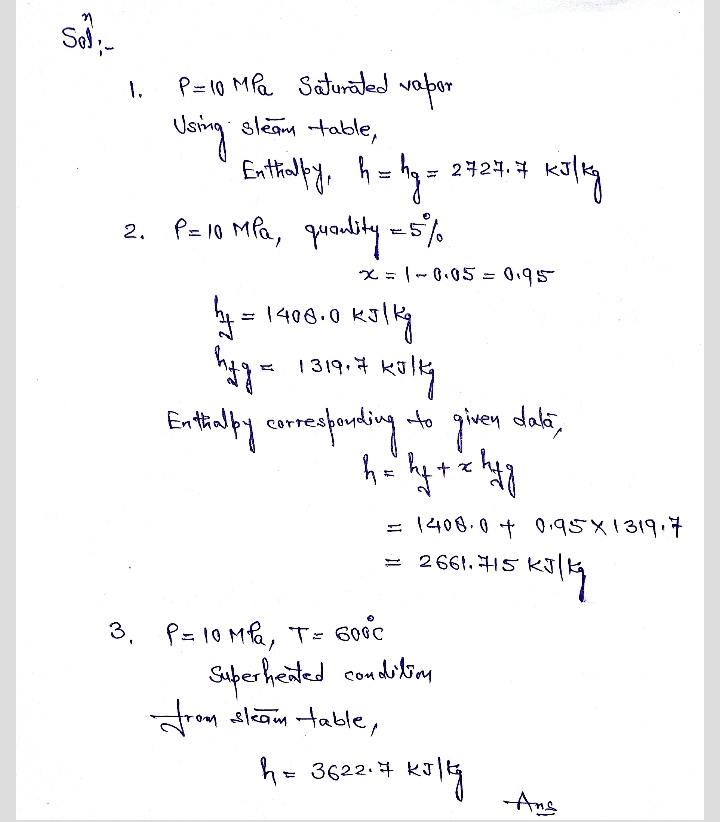 Solⁿ:-
1. P=10 MPa Saturated vapor
Using steam table,
Enthalpy, h = hg = 2727.7 KJ/kg
2. P=10 MPa, quanlity =5%
x = 1-0.05 = 0.95
hf = 1408.0 KJ/kg
hfg = 1319.7 KJ/kg
Enthalpy corresponding to given data,
h = hf + x hfg
= 1408.0 + 0.95 X 1319.7
= 2661.715 KJ/kg
3. P=10 MPa, T= 600°C
Superheated condition
from steam table,
h = 3622.7 KJ/kg
Ans